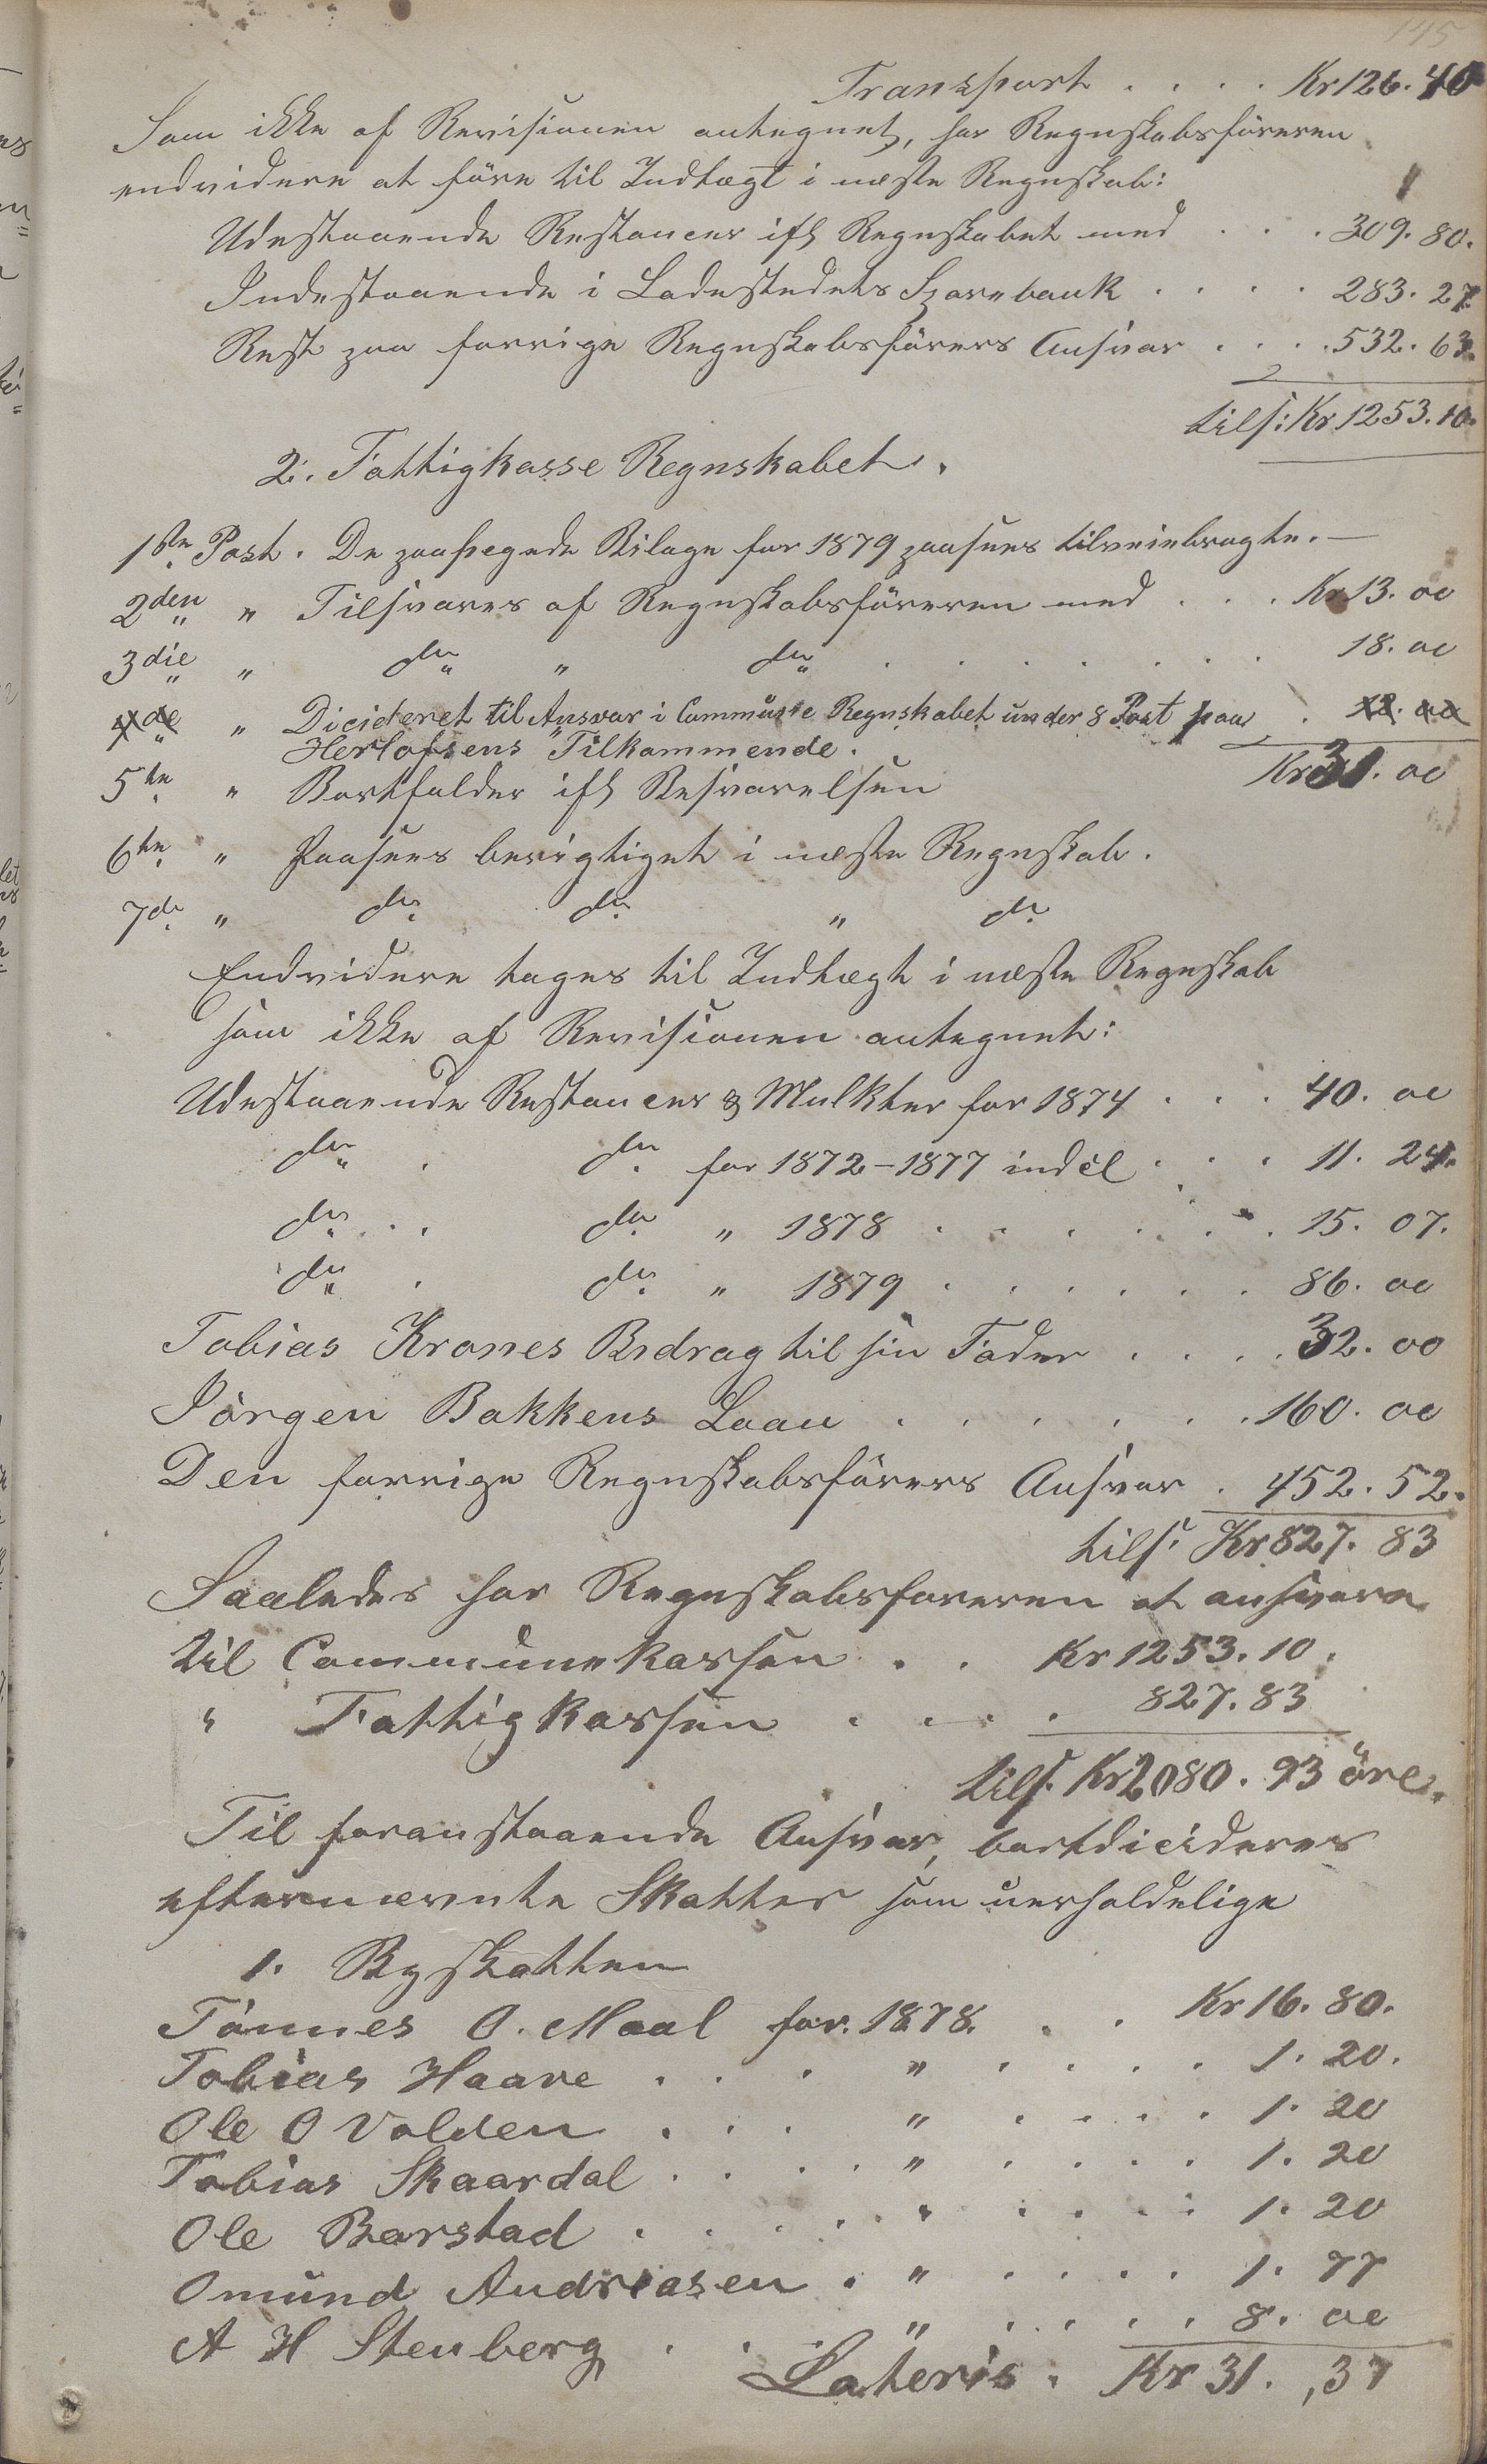 145
Transport . . . . Kr 126. 40
Som ikke af Revisionen antegnet, har Regnskabsföreren
endvidere at före til Indtægt i næste Regnskab:
Udestaaende Restancer ifl Regnskabet med . . . 309. 80.
Indestaaende i Ladestedets Sparebank . . . . 283. 27.
Rest paa forrige Regnskabsförers Ansvar . . . . 532. 63.
tils: Kr 1253. 10.
2. Fattigkasse Regnskabet.
1ste Post. De paapegede Bilage for 1879 paasees tilveiebragte. —
2den " Tilsvares af Regnskabsföreren med . . . Kr 13. 00
3die " do " do . . . . . . . 18. 00
4de " Dicideret til Ansvar i Commune Regnskabet under 8 Post paa . 12. 00
Herlofsens Tilkommende.
Kr 31. 00
5te " Bortfalder ifl Besvarelsen
6te " Paasees berigtiget i næste Regnskab.
7de " do do " do
Endvidere tages til Indtægt i næste Regnskab
som ikke af Revisionen antegnet:
Udestaaende Restancer & Mulkter for 1874 . . . 40. 00
do . do for 1872-1877 incl . . . 11. 24.
do . . do " 1878 . . . . . . 15. 07.
do . do " 1879 . . . . . . 86. 00
Tobias Krones Bidrag til sin Fader . . . . 32. 00
Jörgen Bakkens Laan . . . . . . . 160. 00
Den forrige Regnskabsförers Ansvar . 452. 52.
tils. Kr 827. 83
Saaledes har Regnskabsföreren at ansvare
til Communekassen . . Kr 1253. 10.
" Fattigkassen . . . . 827. 83
tils. Kr 2080. 93 öre.
Til foranstaaende Ansvar, bortdicideres
efternævnte Skatter som uerholdelige
1. Byskatten
Tönnes O. Maal for 1878. . . Kr 16. 80.
Tobias Haave . . . " . . . . 1. 20.
Ole O Valden . . . " . . . . 1. 20
Tobias Skaardal . . . . " . . . . 1. 20
Ole Barstad . . . . . " . . . . 1. 20
Omund Andreasen . " . . . . 1. 77
A H Stenberg . . . " . . . . 8. 00
Lateris. Kr 31. ,37